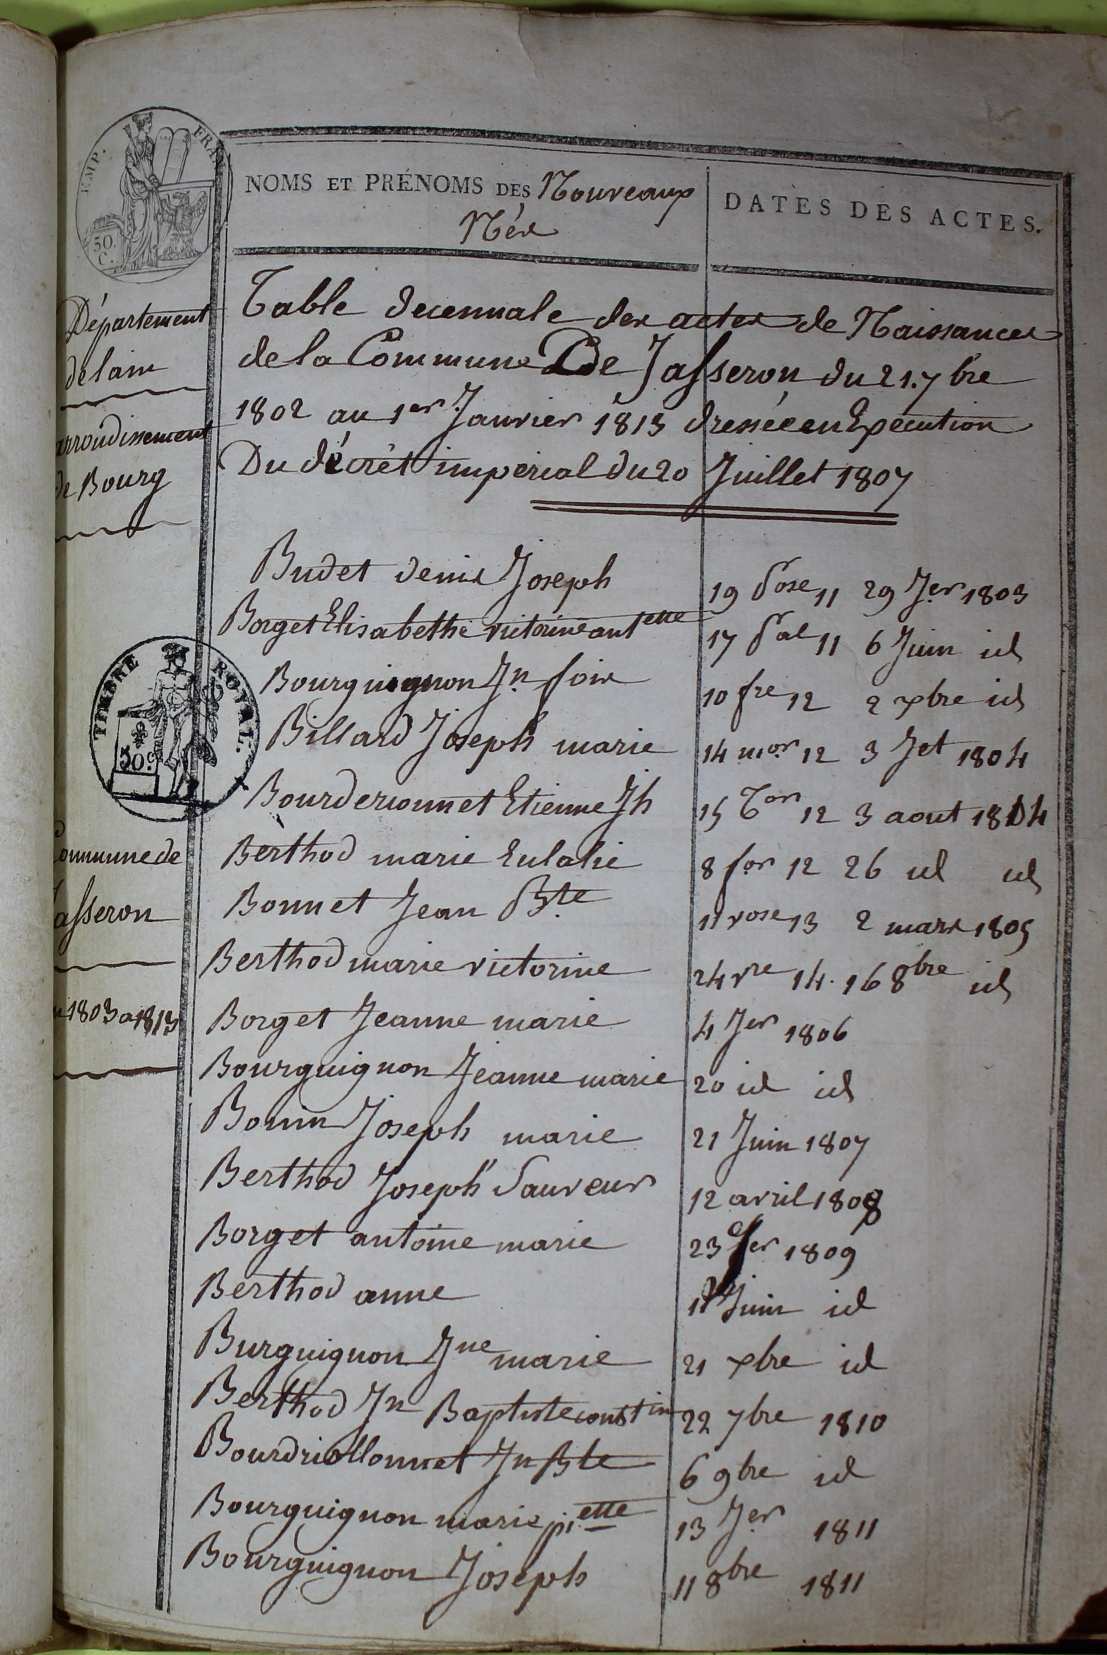 EMP. FRA
50.
C.
NOMS ET PRÉNOMS DES Nouveaux
Nés
DATES DES ACTES.
Département
de lain
arrondissement
de Bourg
Table decennale des actes de Naissances
de la Commune De Jasseron du 21. 7bre
1802 au 1er Janvier 1813 dressée en Execution
Du décrèt imperial du 20 Juillet 1807
TIMBRE ROYAL.
50.c
Commune de
Jasseron
1803 a 1813
Budet denis Joseph 19 Pose 11 29 Jer 1803
Borget Elisabethe victorine antette 17 Pal 11 6 Juin id
Bourguignon Jn foix 10 fre 12 2 xbre id
Billard Joseph marie 14 mor 12 3 Jet 1804
Bourderionnet Etienne Jh 15 Tor 12 3 aout 1804
Berthod marie Eulalie 8 for 12 26 id id
Bonnet Jean Bte 11 vose 13 2 mars 1805
Berthod marie victorine 24 vre 14. 16 8bre id
Borget Jeanne marie 4 Jer 1806
Bourguignon Jeanne marie 20 id id
Bonin Joseph marie 21 Juin 1807
Berthod Joseph Sauveur 12 avril 1808
Borget antoine marie 23 Jer 1809
Berthod anne 11 Juin id
Burguignon Jne marie 21 xbre id
Berthod Jn Baptiste constin 22 7bre 1810
Bourdriollonnet Jn Bte 6 9bre id
Bourguignon marie piette 13 Jer 1811
Bourguignon Joseph 11 8bre 1811